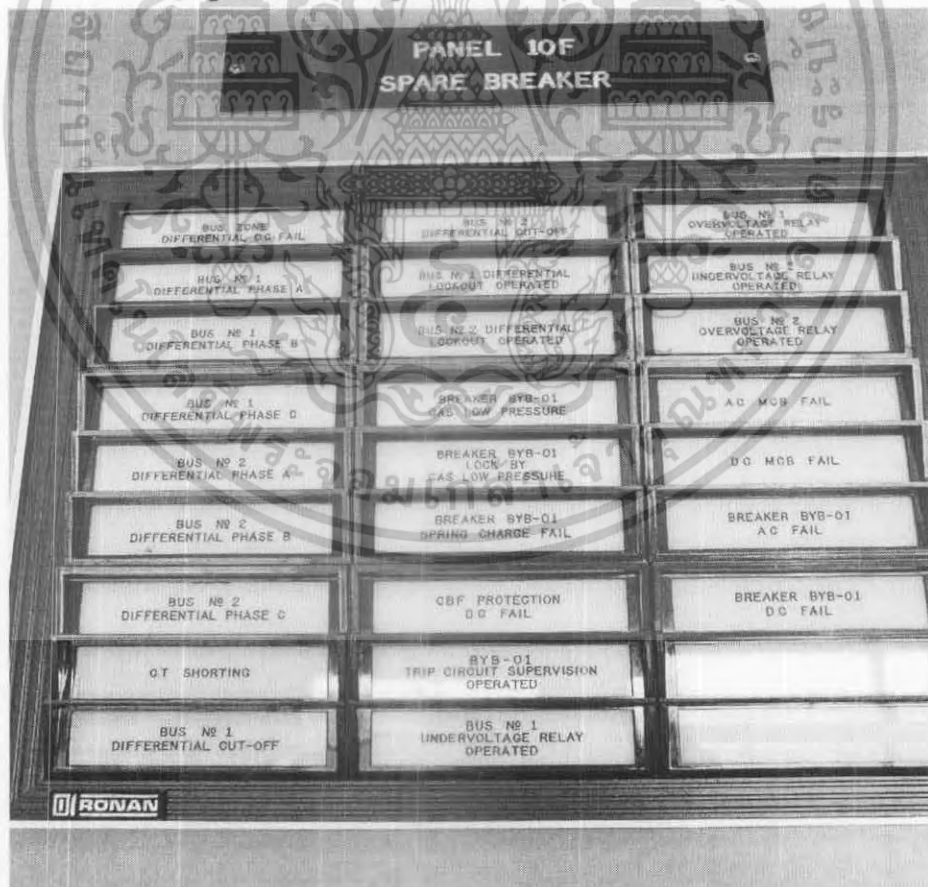 PANEL 10F
SPARE BREAKER
BUS ZONE
DIFFERENTIAL DC FAIL
BUS Nº 1
DIFFERENTIAL PHASE A
BUS Nº 1
DIFFERENTIAL PHASE B
BUS Nº 1
DIFFERENTIAL PHASE C
BUS Nº 2
DIFFERENTIAL PHASE A
BUS Nº 2
DIFFERENTIAL PHASE B
BUS Nº 2
DIFFERENTIAL PHASE C
CT SHORTING
BUS Nº 1
DIFFERENTIAL CUT-OFF
BUS Nº 2
DIFFERENTIAL CUT-OFF
BUS Nº 1 DIFFERENTIAL
LOCKOUT OPERATED
BUS Nº 2 DIFFERENTIAL
LOCKOUT OPERATED
BREAKER BYB-01
GAS LOW PRESSURE
BREAKER BYB-01
LOCK BY
GAS LOW PRESSURE
BREAKER BYB-01
SPRING CHARGE FAIL
CBF PROTECTION
DC FAIL
BYB-01
TRIP CIRCUIT SUPERVISION
OPERATED
BUS Nº 1
UNDERVOLTAGE RELAY
OPERATED
BUS Nº 1
OVERVOLTAGE RELAY
OPERATED
BUS Nº 2
UNDERVOLTAGE RELAY
OPERATED
BUS Nº 2
OVERVOLTAGE RELAY
OPERATED
AC MCB FAIL
DC MCB FAIL
BREAKER BYB-01
AC FAIL
BREAKER BYB-01
DC FAIL
RONAN
พระจอมเกล้าเจ้าคุณทหาร